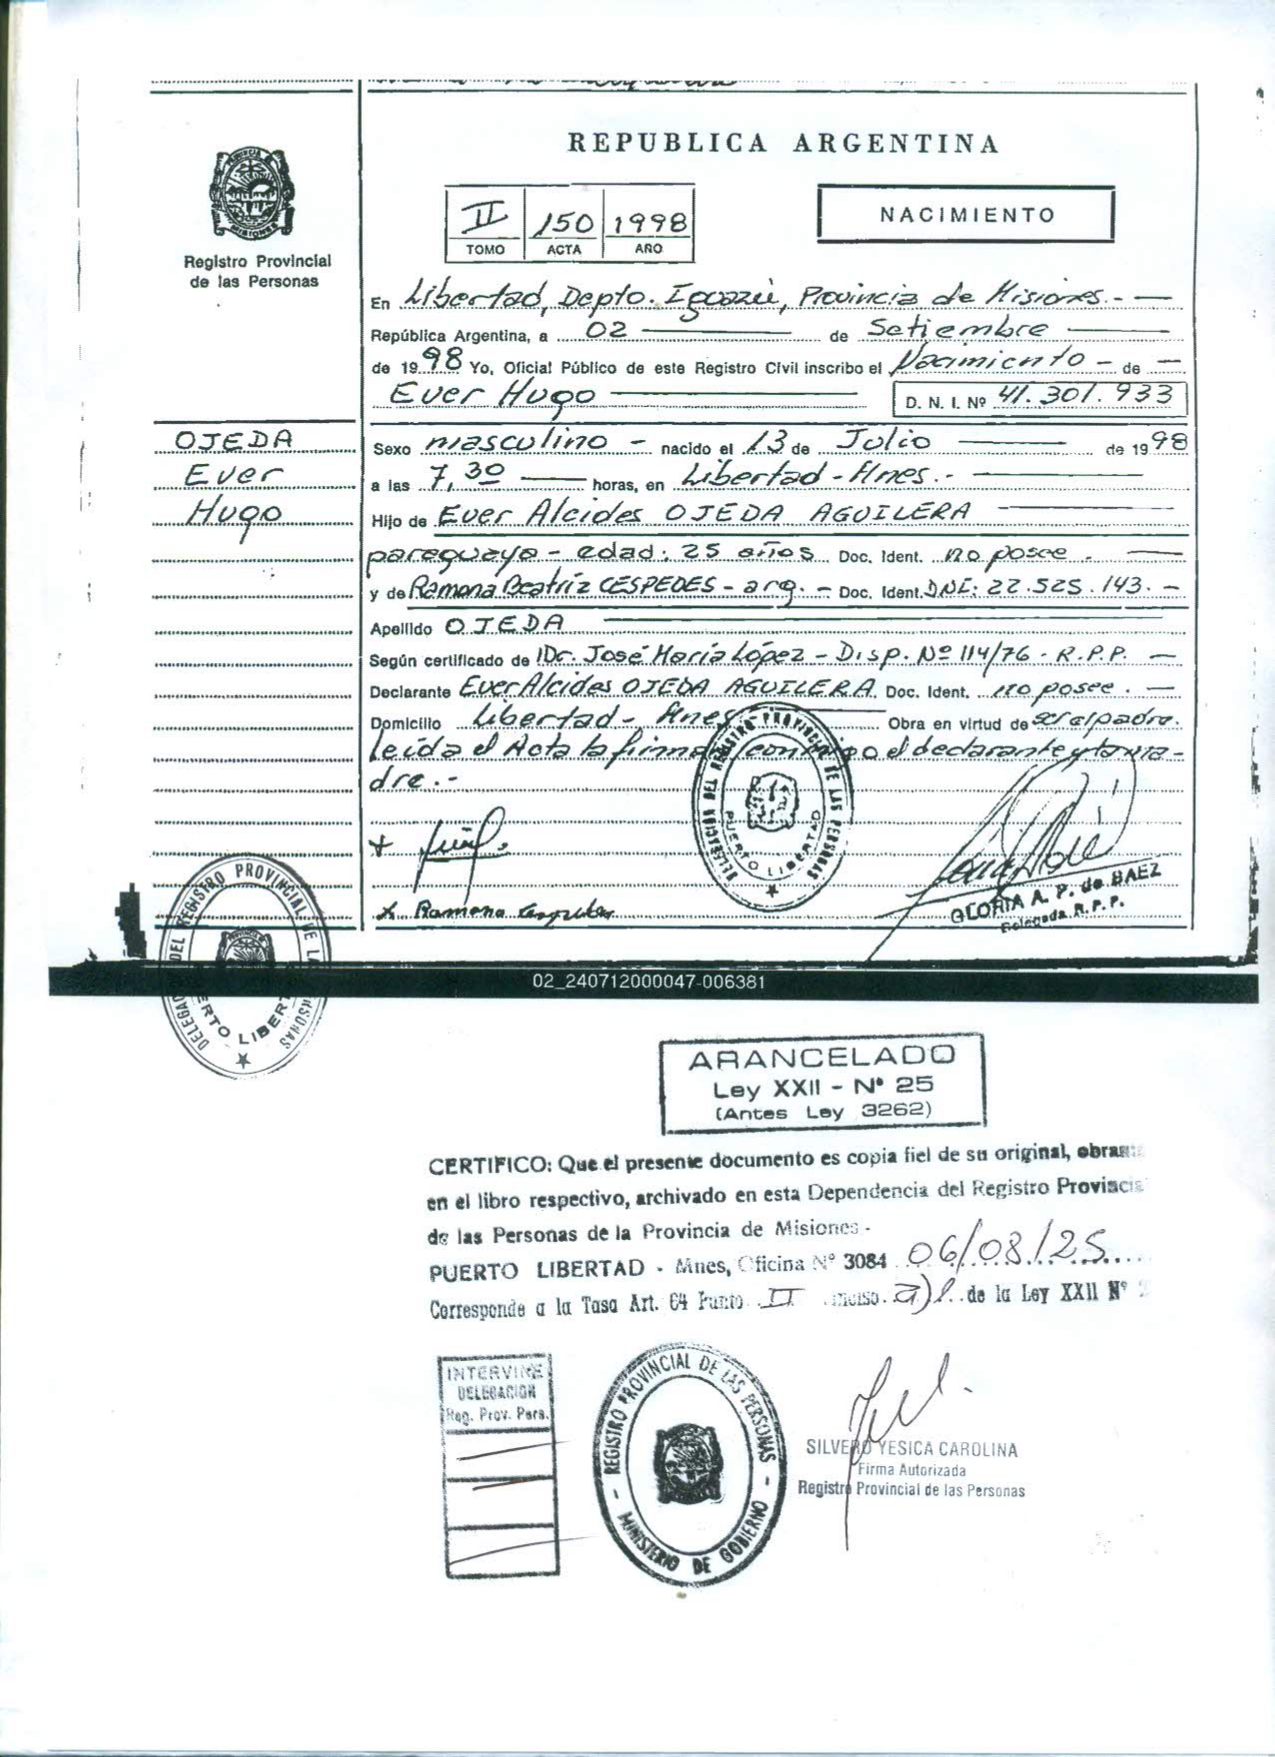 REPUBLICA ARGENTINA
Registro Provincial
de las Personas
II 150 1998
TOMO ACTA AÑO
NACIMIENTO
En Libertad, Depto. Iguazú, Provincia de Misiones.-
República Argentina, a 02 de Setiembre
de 1998 Yo, Oficial Público de este Registro Civil inscribo el Nacimiento - de
Ever Hugo D. N. I. Nº 41.301.933
OJEDA
Ever
Hugo
Sexo masculino - nacido el 13 de Julio de 1998
a las 7,30 horas, en Libertad - Mnes.-
Hijo de Ever Alcides OJEDA AGUILERA
paraguayo - edad: 25 años Doc. Ident. no posee.
y de Ramona Beatriz CESPEDES - arg. - Doc. Ident. DNI: 22.525.143.-
Apellido OJEDA
Según certificado de Dr. José María López - Disp. Nº 114/76 - R.P.P. -
Declarante Ever Alcides OJEDA AGUILERA Doc. Ident. no posee. -
Domicilio Libertad - Mnes Obra en virtud de ser el padre.
Leída el Acta la firma conmigo el declarante y la ma-
dre.-
DELEGACION DEL REGISTRO PROVINCIAL DE LAS PERSONAS
PUERTO LIBERTAD
x Ramona Cespedes
GLORIA A. P. de BAEZ
Delegada R. P. P.
DELEGACION DEL REGISTRO PROVINCIAL DE LAS PERSONAS
PUERTO LIBERTAD
02_240712000047-006381
ARANCELADO
Ley XXII - Nº 25
(Antes Ley 3262)
CERTIFICO: Que el presente documento es copia fiel de su original,
en el libro respectivo, archivado en esta Dependencia del Registro Provincial
de las Personas de la Provincia de Misiones -
PUERTO LIBERTAD - Mnes, Oficina Nº 3084 06/08/25
Corresponde a la Tasa Art. 64 Punto II inciso a) 1 de la Ley XXII Nº
INTERVINE
DELEGACION
Reg. Prov. Pers.
REGISTRO PROVINCIAL DE LAS PERSONAS
MINISTERIO DE GOBIERNO
SILVERO YESICA CAROLINA
Firma Autorizada
Registro Provincial de las Personas